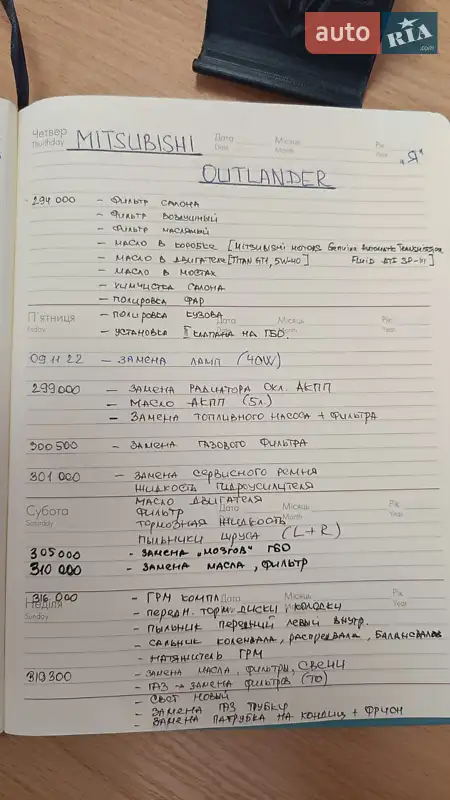 auto RIA.com
Четвер Thursday MITSUBISHI Дата Date Місяць Month Рік Year "Я"
OUTLANDER
294 000 - ФИЛЬТР САЛОНА
- ФИЛЬТР ВОЗДУШНЫЙ
- ФИЛЬТР МАСЛЯНЫЙ
- МАСЛО В КОРОБКЕ [MITSUBISHI MOTORS GENUINE AUTOMATIC TRANSMISSION
- МАСЛО В ДВИГАТЕЛЕ [TITAN GT1, 5W-40] FLUID ATF SP-III]
- МАСЛО В МОСТАХ
- ХИМЧИСТКА САЛОНА
- ПОЛИРОВКА ФАР
П'ятниця Friday - ПОЛИРОВКА КУЗОВА Дата Місяць Month Рік Year
- УСТАНОВКА КЛАПАНА НА ГБО.
09.11.22 - ЗАМЕНА ЛАМП (40W)
299000 - ЗАМЕНА РАДИАТОРА ОХЛ. АКПП
- МАСЛО АКПП (5л.)
- ЗАМЕНА ТОПЛИВНОГО НАСОСА + ФИЛЬТРА
300 500 - ЗАМЕНА ГАЗОВОГО ФИЛЬТРА
301 000 - ЗАМЕНА СЕРВИСНОГО РЕМНЯ
ЖИДКОСТЬ ГИДРОУСИЛИТЕЛЯ
МАСЛО ДВИГАТЕЛЯ
Субота Saturday ФИЛЬТР Дата Місяць Month Рік Year
ТОРМОЗНАЯ ЖИДКОСТЬ
ПЫЛЬНИКИ ШРУСА (L+R)
305 000 - ЗАМЕНА "МОЗГОВ" ГБО
310 000 - ЗАМЕНА МАСЛА, ФИЛЬТР
316 000 - ГРМ КОМПЛ Дата Місяць Рік Year
Неділя Sunday - ПЕРЕДН. ТОРМ. ДИСКИ, КОЛОДКИ
- ПЫЛЬНИК ПЕРЕДНИЙ ЛЕВЫЙ ВНУТР.
- САЛЬНИК КОЛЕНВАЛА, РАСПРЕДВАЛА, БАЛАНСВАЛОВ
- НАТЯЖИТЕЛЬ ГРМ
319 300 - ЗАМЕНА МАСЛА, ФИЛЬТРЫ, СВЕЧИ
- ГАЗ → ЗАМЕНА ФИЛЬТРОВ (ТО)
- СВЕТ НОВЫЙ
- ЗАМЕНА ГАЗ ТРУБКУ
- ЗАМЕНА ПАТРУБКА НА КОНДИЦ + ФРИОН